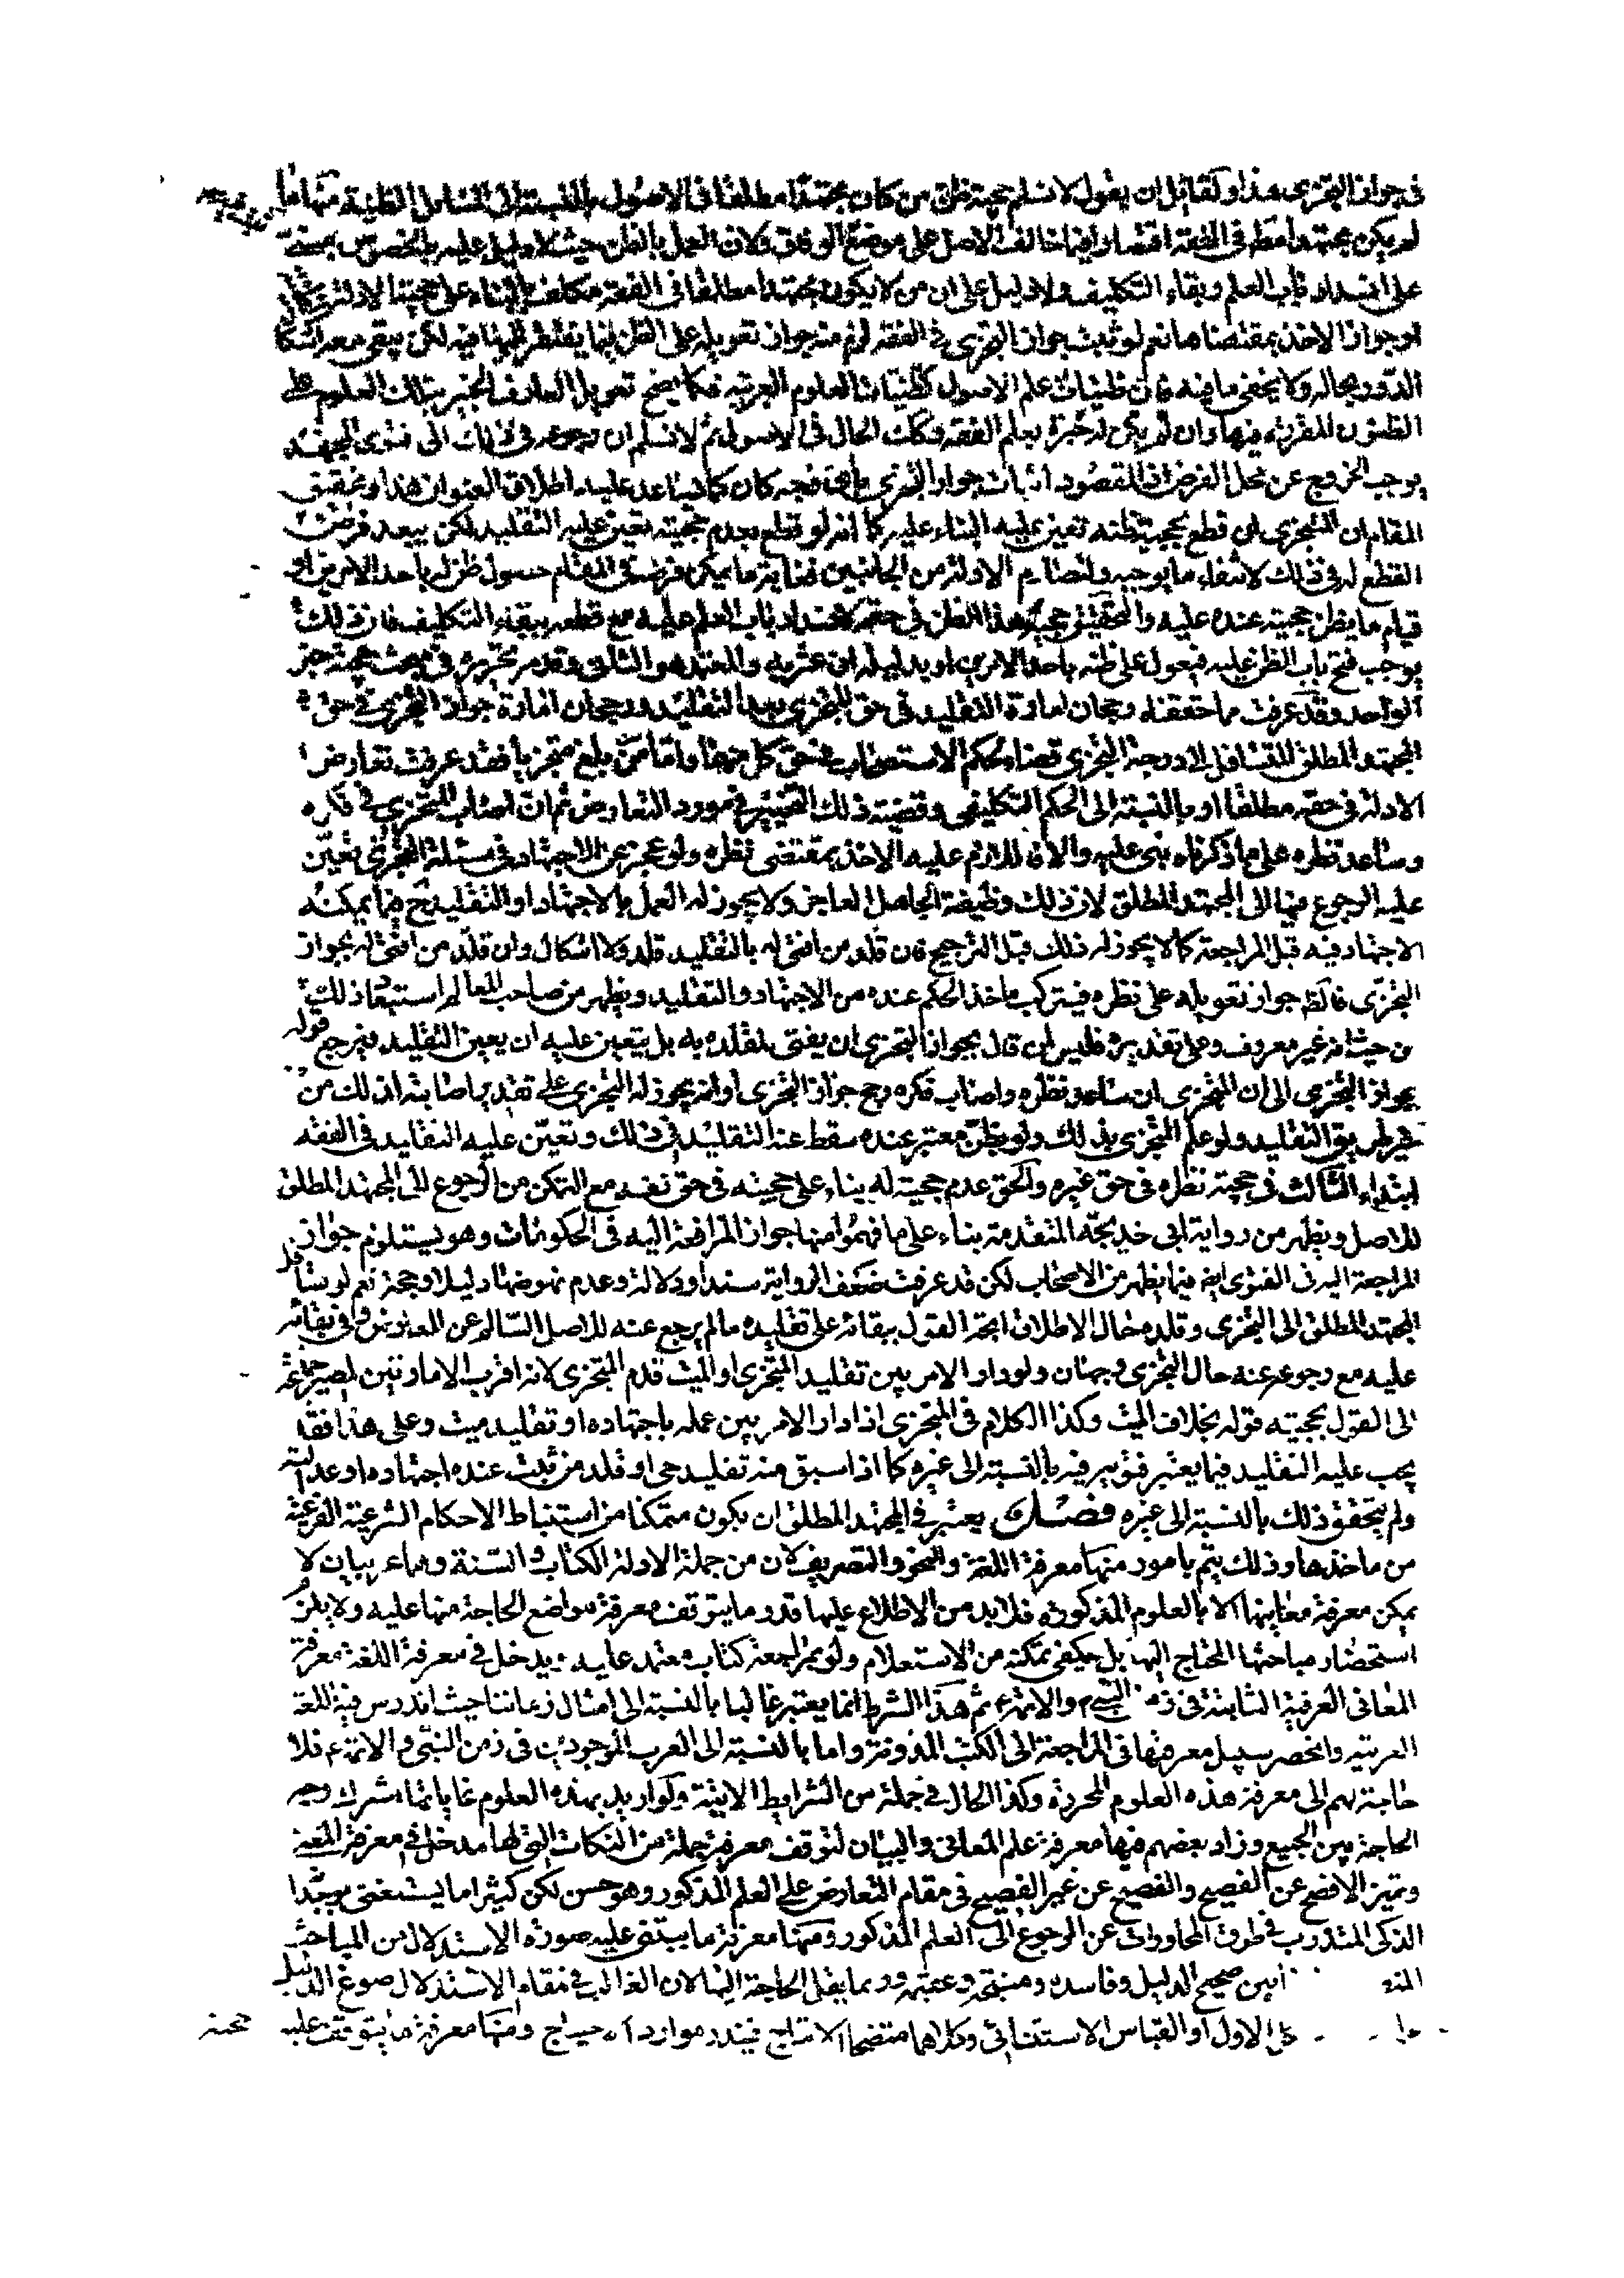 في جواز التجزي هذا ولقائل ان يقول لا نسلم حجية ظن من كان مجتهدا مطلقا في الاصول بالنسبة الى المسائل الظنية منها ما
لم يكن مجتهدا مطلقا في الفقه اقتصارا فيما خالف الاصل على موضع الوفاق ولان العمل بالظن حيث لا دليل عليه بالخصوص
على انسداد باب العلم وبقاء التكليف ولا دليل على ان من لا يكون مجتهدا مطلقا في الفقه مكلف بالبناء على حجية الادلة
او جواز الاخذ بمقتضاها نعم لو ثبت جواز التجزي في الفقه لزم منه جواز تعويله على الظن فيما يفتقر اليه فيه لكن يبقى معه اشكال
الدور بحاله ولا يخفى ما فيه فان ظنيات علم الاصول كظنيات العلوم العربية فكما يصح تعويل العارف الخبير بتلك العلوم على
الظنون المقررة فيها وان لم يكن له خبرة بعلم الفقه فكذلك الحال في الاصول ثم لا نسلم ان رجوعه في ذلك الى فتوى المجتهد
يوجب الخروج عن محل الفرض اذ المقصود اثبات جواز التجزي باي وجه كان كما يساعد عليه اطلاق العنوان هذا وتحقيق
المقام ان المتجزي ان قطع بحجية ظنه تعين عليه البناء عليه كما انه لو قطع بعدم حجيته تعين عليه التقليد لكن يبعد فرض
القطع له في ذلك لانتفاء ما يوجبه ولتصادم الادلة من الجانبين فغاية ما يمكن فرضه في المقام حصول ظن له باحد الامرين او
قيام ما يظن حجيته عنده عليه والتحقيق حجية هذا الظن في حقه لانسداد باب العلم عليه مع قطعه ببقاء التكليف فان ذلك
يوجب فتح باب الظن عليه فيعول على ظنه باحد الامرين او بدليله ان عثر به والمعتمد هو الثاني وقد مر تحريره في مبحث حجية خبر
الواحد وقد عرفت مما حققنا رجحان امارة التقليد في حق المتجزي بعد التقليد ورجحان امارة جواز التجزي في حق
المجتهد المطلق المتسافل الى درجة التجزي قضاء لحكم الاستصحاب في حق كل منهما واما من بلغ متجزيا فقد عرفت تعارض
الادلة في حقه مطلقا او بالنسبة الى الحكم التكليفي وقضية ذلك التخيير في مورد التعارض ثم ان اصاب المتجزي في فكره
وساعد نظره على ما ذكرناه بنى عليه والا فاللازم عليه الاخذ بمقتضى نظره ولو عجز عن الاجتهاد في مسئلة التجزي تعين
عليه الرجوع فيها الى المجتهد المطلق لان ذلك وظيفة الجاهل العاجز ولا يجوز له العمل بالاجتهاد او التقليد ح فيما يمكنه
الاجتهاد فيه قبل المراجعة كما لا يجوز له ذلك قبل الترجيح فان قلد من افتى له بالتقليد قلد ولا اشكال وان قلد من افتى له بجواز
التجزي فالظ جواز تعويله على نظره فيتركب ماخذ الحكم عنده من الاجتهاد والتقليد ويظهر من صاحب المعالم استبعاد ذلك
من حيث انه غير معروف وعلى تقديره فليس لمن قال بجواز التجزي ان يفتى لمقلده به بل يتعين عليه ان يعين التقليد فيرجع قوله
بجواز التجزي الى ان المتجزي ان ساعد نظره واصاب فكره رجح جواز التجزي او انه يجوز له التجزي على تقدير اصابته اذ ذلك من
غير طريق التقليد ولو علم المتجزي بذلك ولو بظن معتبر عنده سقط عنه التقليد في ذلك وتعين عليه التقليد في الفقه
ابتداء الثالث في حجية نظره في حق غيره والحق عدم حجيته له بناء على حجيته في حق نفسه مع التمكن من الرجوع الى المجتهد المطلق
للاصل ويظهر من رواية ابي خديجة المتقدمة بناء على ما فهموا منها جواز المرافعة اليه في الحكومات وهو يستلزم جواز
المراجعة اليه في الفتوى ايضا فيما يظهر من الاصحاب لكن قد عرفت ضعف الرواية سندا ودلالة وعدم نهوضها دليلا وحجة نعم لو تسافل
المجتهد المطلق الى التجزي وقلده حال الاطلاق اتجه القول ببقائه على تقليده ما لم يرجع عنه للاصل السالم عن المعارض وفي بقائه
عليه مع رجوعه عنه حال التجزي وجهان ولو دار الامر بين تقليد المتجزي او الميت قدم المتجزي لانه اقرب الامارتين لمصير جماعة
الى القول بحجية قوله بخلاف الميت وكذا الكلام في المتجزي اذا دار الامر بين عمله باجتهاده او تقليد ميت وعلى هذا فقد
يجب عليه التقليد فيما يعتبر فتويه فيه بالنسبة الى غيره كما اذا سبق منه تقليد حي او قلد من ثبت عنده اجتهاده او عدالته
ولم يتحقق ذلك بالنسبة الى غيره فصل يعتبر في المجتهد المطلق ان يكون متمكنا من استنباط الاحكام الشرعية الفرعية
من ماخذها وذلك يتم بامور منها معرفة اللغة والنحو والتصريف لان من جملة الادلة الكتاب والسنة وهما عربيان لا
يمكن معرفة معانيهما الا بالعلوم المذكورة فلا بد من الاطلاع عليها قدر ما يتوقف معرفة مواضع الحاجة منها عليه ولا يلزم
استحضار مباحثها المحتاج اليها بل يكفي تمكنه من الاستعلام ولو بمراجعة كتاب معتمد عليه ويدخل في معرفة اللغة معرفة
المعاني العرفية الثابتة في زمن النبي والائمة ع ثم هذا الشرط انما يعتبر غالبا بالنسبة الى امثال زماننا حيث اندرس فيه اللغة
العربية وانحصر سبيل معرفتها في المراجعة الى الكتب المدونة واما بالنسبة الى العرب الموجودين في زمن النبي والائمة ع فلا
حاجة لهم الى معرفة هذه العلوم المحررة وكذا الحال في جملة من الشرايط الاتية ولو اريد بهذه العلوم غاياتها اشترك وجه
الحاجة بين الجميع وزاد بعضهم فيها معرفة علم المعاني والبيان لتوقف معرفة جملة من النكات التي لها مدخل في معرفة المعنى
وتميز الافصح عن الفصيح والفصيح عن غير الفصيح في مقام التعارض على العلم المذكور وهو حسن لكن كثيرا ما يستغنى
الذكي المتدرب في طرق المحاورات عن الرجوع الى العلم المذكور ومنها معرفة ما يبتنى عليه صورة الاستدلال من المباحث
بين صحيح الدليل وفاسده ومنتجه وعقيمه وربما يقل الحاجة اليها لان الغالب في مقام الاستدلال صوغ الدليل
الاول او القياس الاستثنائي وكلاهما متضحا الانتاج فيندر موارد الاحتياج ومنها معرفة ما يتوقف عليه